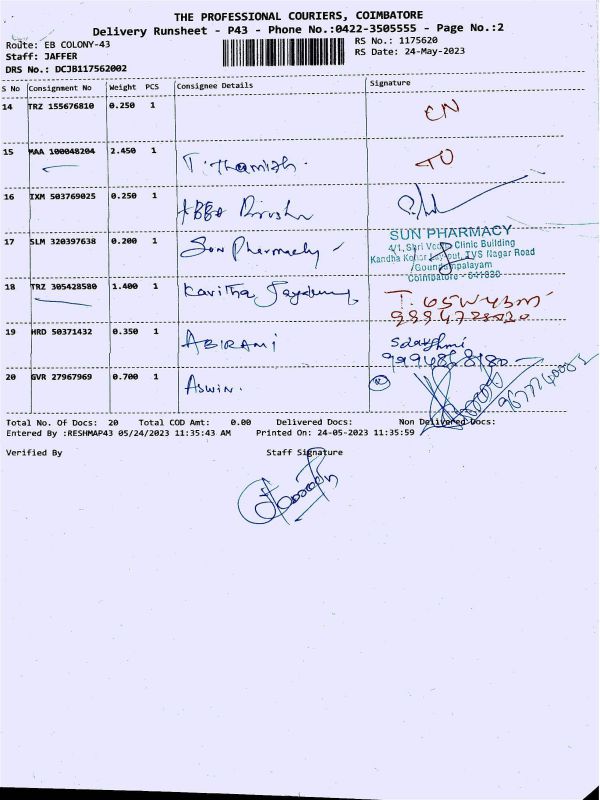 THE PROFESSIONAL COURIERS, COIMBATORE
Delivery Runsheet - P43 - Phone No.:0422-3505555 - Page No.:2
Route: EB COLONY-43
RS No.: 1175620
Staff: JAFFER
RS Date: 24-May-2023
DRS No.: DCJB117562002
S No Consignment No Weight PCS Consignee Details Signature
14 TRZ 155676810 0.250 1 CN
15 MAA 100048204 2.450 1 T. Thamizh. TU
16 IXM 503769025 0.250 1
SUN PHARMACY
17 SLM 320397638 0.200 1 Sun Pharmacy
4/1, Shri Clinic Building
Kandha Layout, TVS Nagar Road
Goundampalayam
Coimbatore - 641030
18 TRZ 305428580 1.400 1 Kavitha
19 HRD 50371432 0.350 1 ABIRAMI
20 GVR 27967969 0.700 1 ASWIN.
Total No. Of Docs: 20 Total COD Amt: 0.00 Delivered Docs: Non Delivered Docs:
Entered By :RESHMAP43 05/24/2023 11:35:43 AM Printed On: 24-05-2023 11:35:59
Verified By Staff Signature